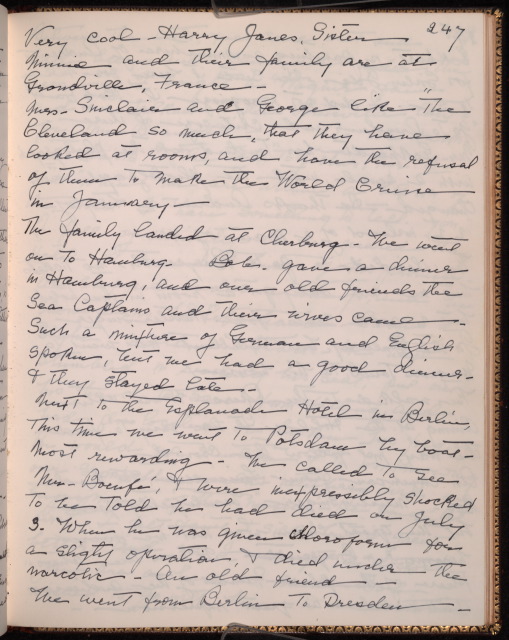 247
Very cool - Harry Janes, Sister
Minnie and their family are at
Grandville, France -
Mrs - Sinclair and George like "The
Cleveland so much, that they have
looked at rooms, and have the refusal
of them to make the World Cruise
in January -
The family landed at Cherburg - We went
on to Hamburg. Bob - gave a dinner
in Hamburg, and our old friends the
Sea Captains and their wives came -
Such a mixture of German and English
spoken, but we had a good dinner -
& they stayed late -
Next to the Esplanade Hotel in Berlin,
This time we went to Potsdam by boat -
Most rewarding - We called to see
& were inexpressibly shocked
to be told he had died on July
3. When he was given Chloroform for
a slight operation & died under the
narcotic - An old friend -
We went from Berlin to Dresden -